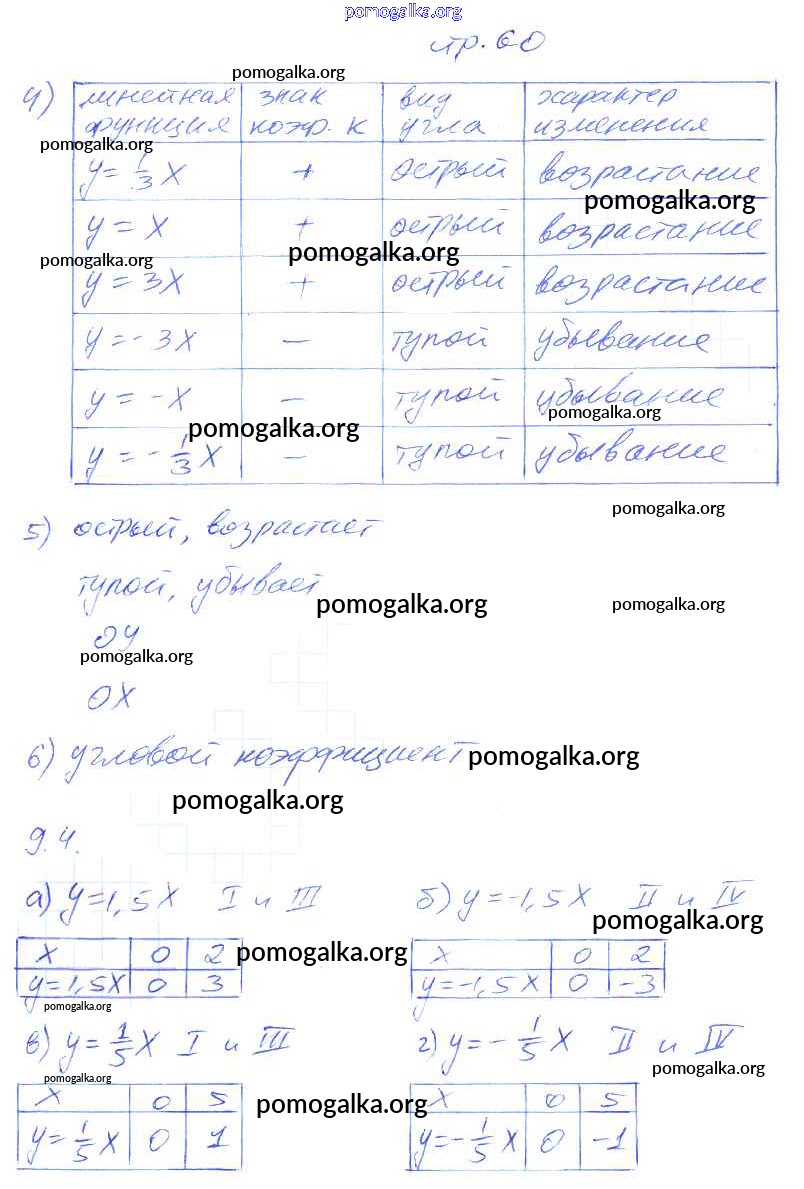 pomogalka.org
стр. 60
pomogalka.org
4) линейная функция знак коэф. к вид угла характер изменения
pomogalka.org
y = 1/3 x + острый возрастание
pomogalka.org
y = x + острый возрастание
pomogalka.org
pomogalka.org
y = 3x + острый возрастание
y = -3x — тупой убывание
y = -x — тупой убывание
pomogalka.org
pomogalka.org
y = -1/3 x — тупой убывание
pomogalka.org
5) острый, возрастает
тупой, убывает
pomogalka.org
pomogalka.org
ОУ
pomogalka.org
ОХ
6) угловой коэффициент
pomogalka.org
pomogalka.org
9.4.
а) y=1,5x I и III б) y=-1,5x II и IV
pomogalka.org
x 0 2 pomogalka.org x 0 2
y=1,5x 0 3 y=-1,5x 0 -3
pomogalka.org
в) y = 1/5 x I и III г) y = -1/5 x II и IV
pomogalka.org
pomogalka.org
x 0 5 pomogalka.org x 0 5
y = 1/5 x 0 1 y = -1/5 x 0 -1